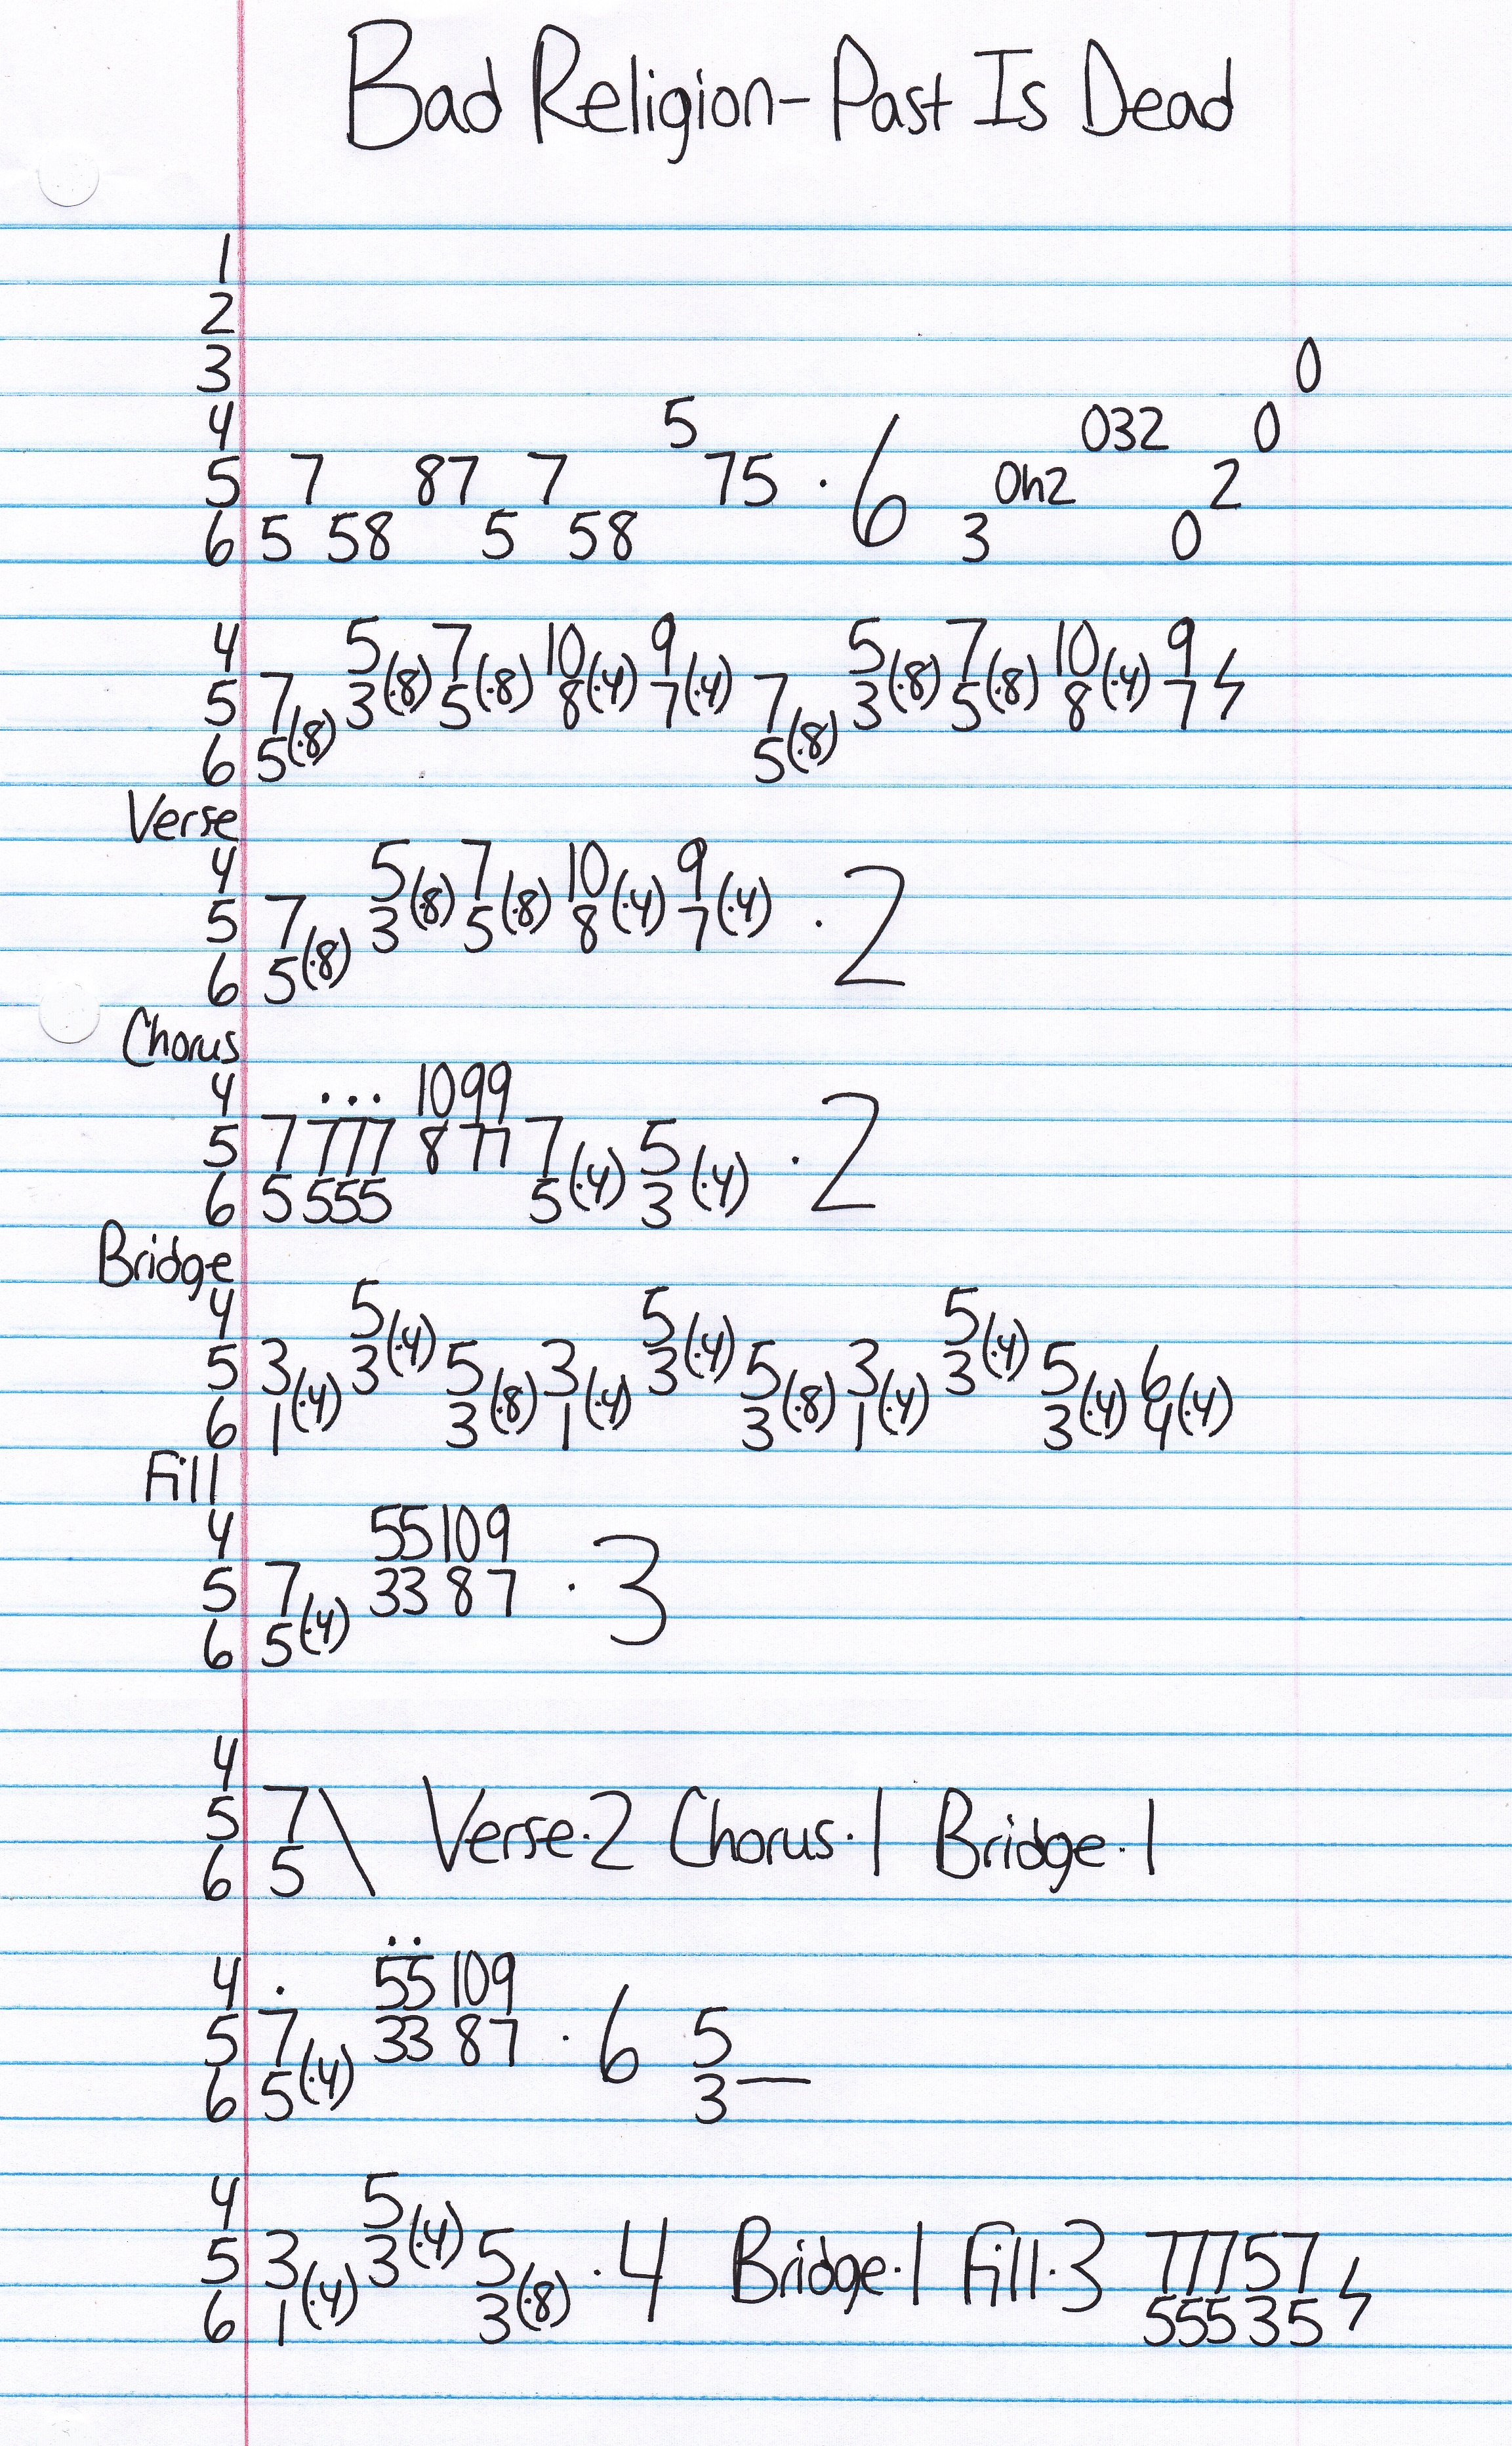 Bad Religion- Past Is Dead
1
2
3 0
4 5 032 0
5 7 87 7 75 · 6 0h2 2
6 5 58 5 58 3 0
4 5 7 10 9 5 7 10 9
5 7 3(·8) 5(·8) 8(·4) 7(·4) 7 3(·8) 5(·8) 8(·4) 7 ϟ
6 5(·8) 5(·8)
Verse
4 5 7 10 9
5 7 3(·8) 5(·8) 8(·4) 7(·4) · 2
6 5(·8)
Chorus
4 ... 10 9 9
5 7 777 8 77 7 5 · 2
6 5 555 5(·4) 3(·4)
Bridge
4 5 5 5
5 3 3(·4) 5 3 3(·4) 5 3 3(·4) 5 6
6 1(·4) 3(·8) 1(·4) 3(·8) 1(·4) 3(·4) 4(·4)
Fill
4 55 10 9
5 7 33 8 7 · 3
6 5(·4)
4
5 7 \ Verse·2 Chorus·1 Bridge·1
6 5
4 · 55 10 9
5 7 33 8 7 · 6 5
6 5(·4) 3—
4 5
5 3 3(·4) 5 · 4 Bridge·1 Fill·3 77757 ϟ
6 1(·4) 3(·8) 55535